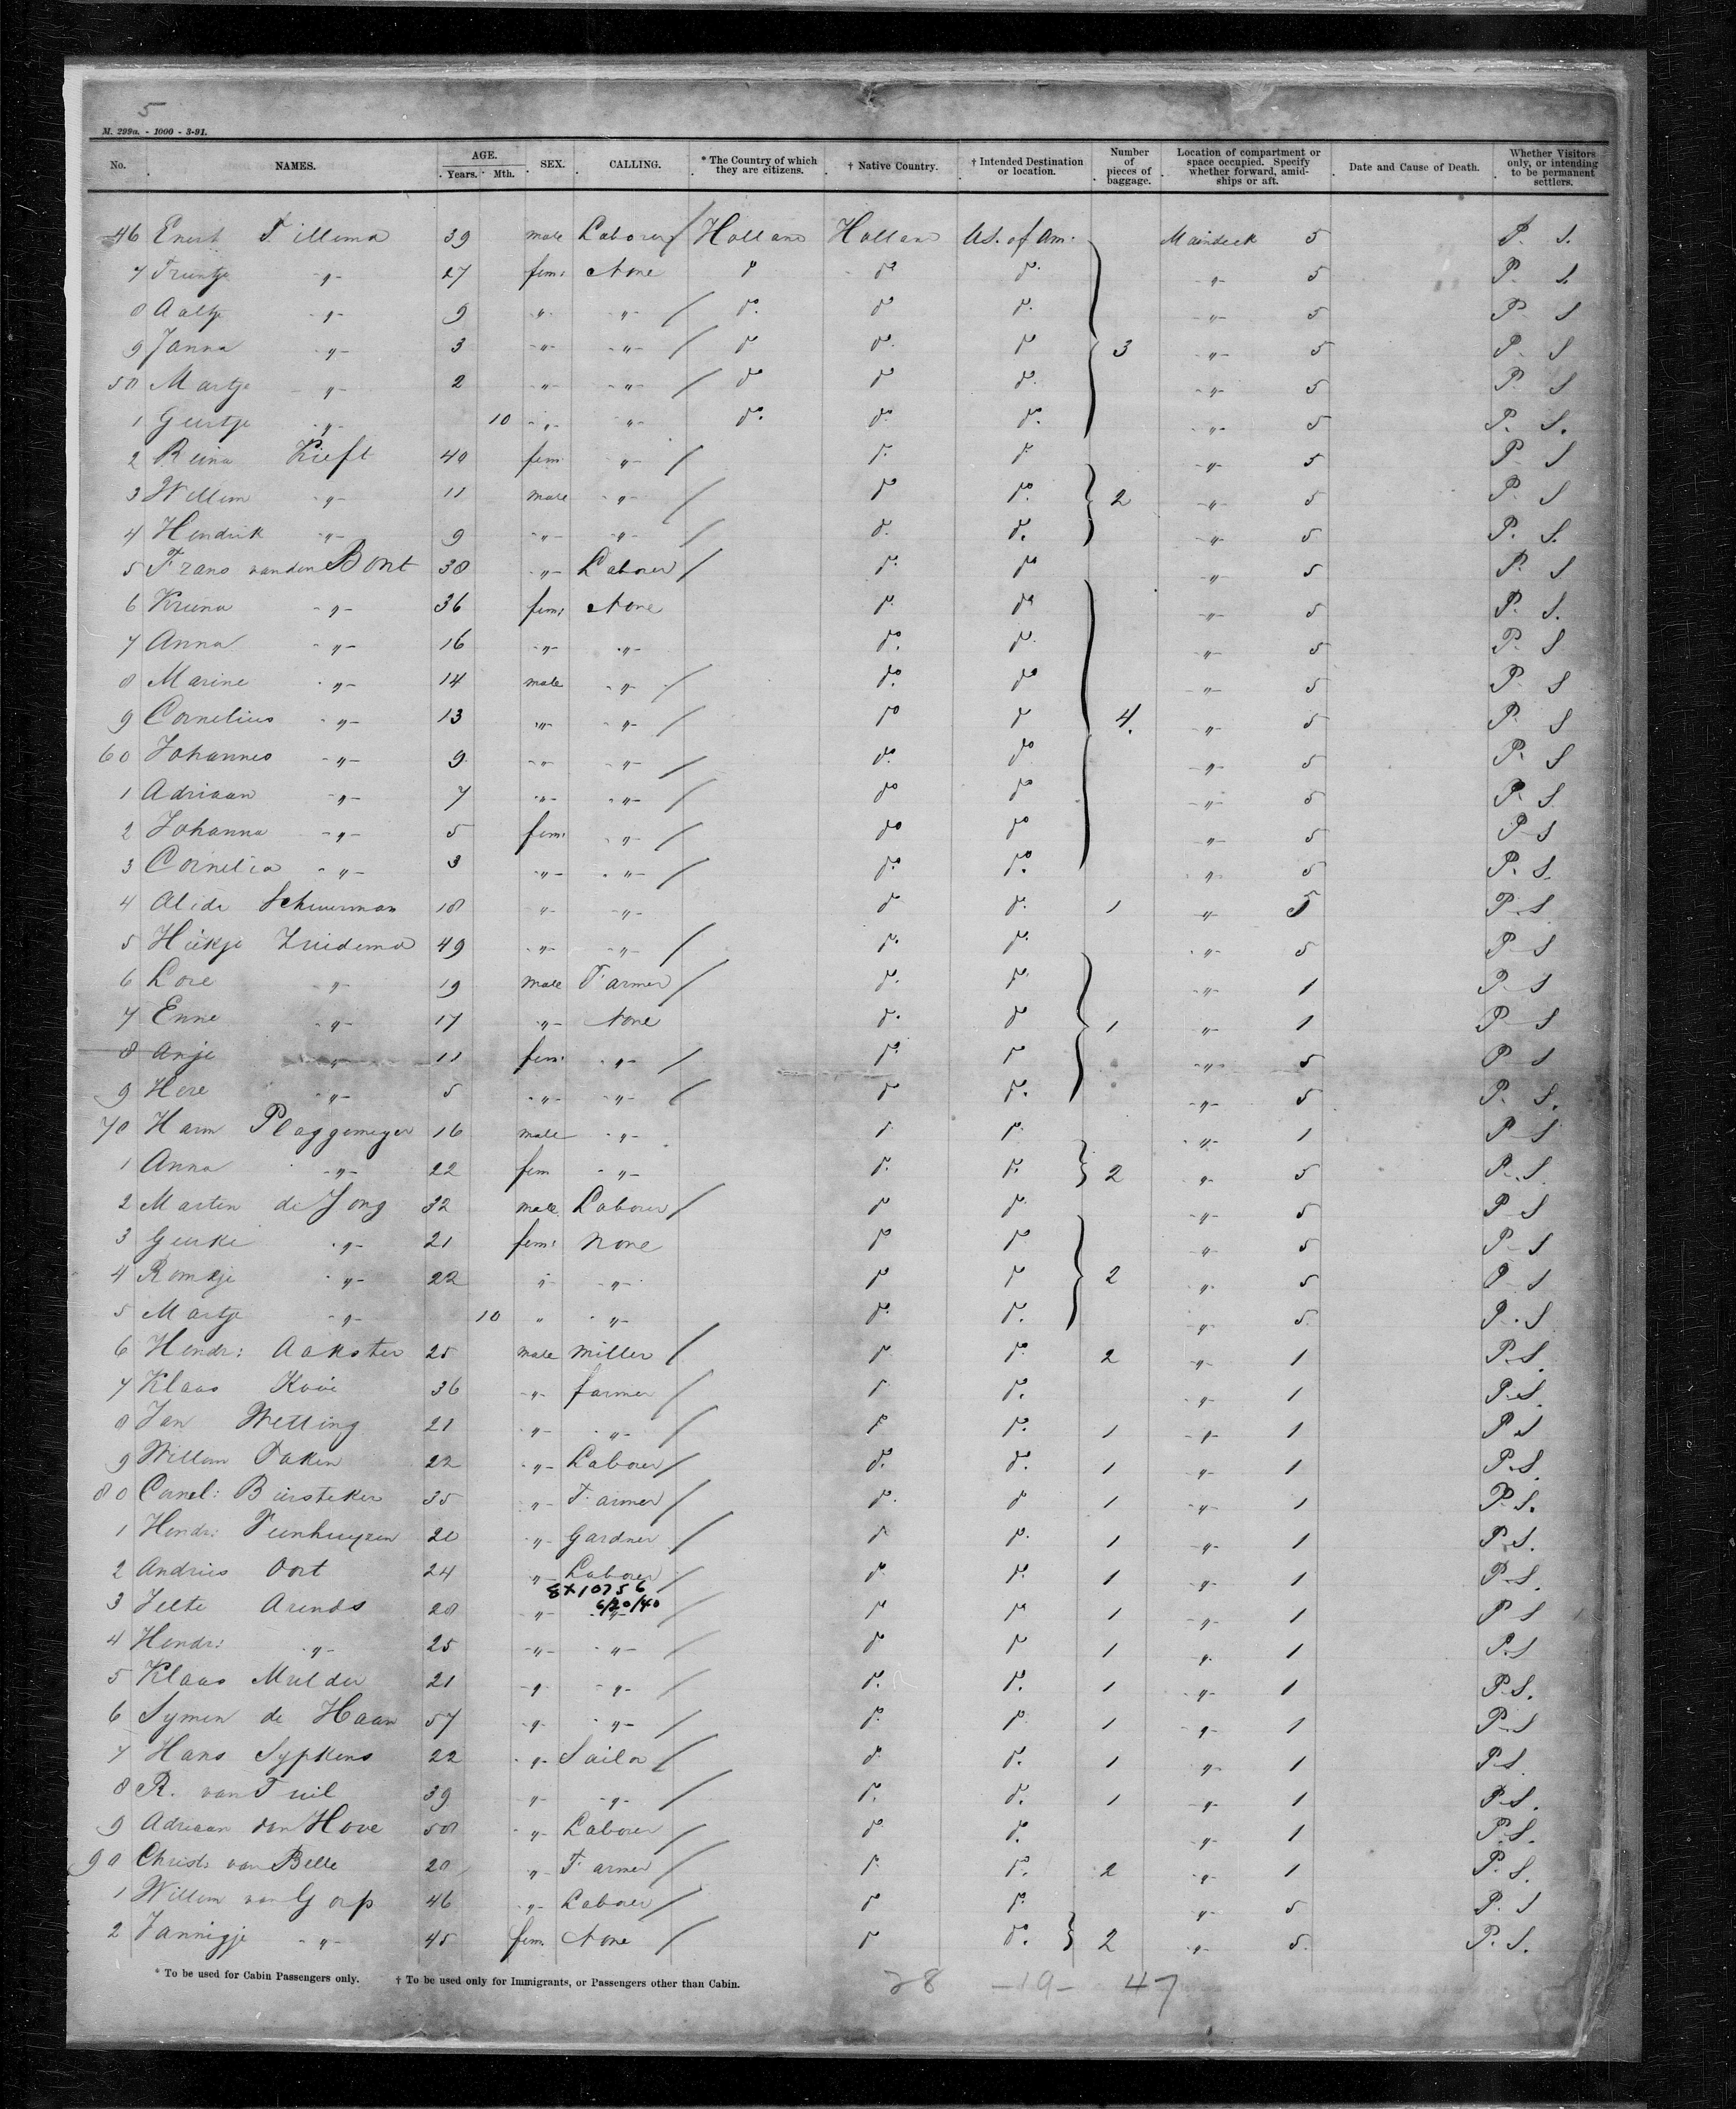 5
M. 299a. - 1000 - 3-91.
No. NAMES. AGE. Years. Mth. SEX. CALLING. * The Country of which they are citizens. † Native Country. † Intended Destination or location. Number of pieces of baggage. Location of compartment or space occupied. Specify whether forward, amidships or aft. Date and Cause of Death. Whether Visitors only, or intending to be permanent settlers.
46 Evert Tillema 39 male Laborer / Holland Holland U.S. of Am. Maindeck 5 P. S.
7 Trientje -"- 27 fem: None do do do. -"- 5 P. S.
8 Aaltje -"- 9 -"- -"- / do. do do. -"- 5 P S
9 Janna -"- 3 -"- -"- / do do. do 3 -"- 5 P. S
50 Martje -"- 2 -"- -"- / do do do. -"- 5 P. S
1 Geertje -"- 10 -"- -"- do. do. do. -"- 5 P. S.
2 Reina Kieft 40 fem -"- / do. do -"- 5 P S
3 Willem -"- 11 male -"- / do do. 2 -"- 5 P. S
4 Hendrik -"- 9 -"- -"- / do. do. -"- 5 P. S.
5 Frans van den Bont 38 -"- Laborer / do. do -"- 5 P. S
6 -"- 36 fem: None do. do -"- 5 P. S.
7 Anna -"- 16 -"- -"- do. do. -"- 5 P. S
8 Marine -"- 14 male -"- / do. do -"- 5 P. S
9 Cornelius -"- 13 -"- -"- / do do 4. -"- 5 P. S
60 Johannes -"- 9 -"- -"- / do. do -"- 5 P. S
1 Adriaan -"- 7 -"- -"- / do do -"- 5 P. S.
2 Johanna -"- 5 fem: -"- / do do -"- 5 P S
3 Cornelia -"- 3 -"- -"- / do. do. -"- 5 P. S.
4 Alida Schuurman 18 -"- -"- do do. 1 -"- 5 P. S
5 Hiekje Zuidema 49 -"- -"- / do. do. -"- 5 P S
6 -"- 19 male Farmer / do. do. -"- 1 P S
7 Enne -"- 17 -"- None do. do 1 -"- 1 P S
8 Anje -"- 11 fem: -"- / do. do -"- 5 P S
9 Here -"- 5 -"- -"- / do do. -"- 5 P. S.
70 Harm Plaggemeyer 16 male -"- do do. -"- 1 P S
1 Anna -"- 22 fem -"- do. do. 2 -"- 5 P. S.
2 Marten de Jong 32 male Laborer / do do. -"- 5 P S
3 -"- 21 fem: none do do -"- 5 P S
4 Romkje -"- 22 -"- -"- do do 2 -"- 5 P S
5 Martje -"- 10 " -"- do. do. -"- 5. P. S
6 Hendr: Aakster 25 male miller / do do. 2 -"- 1 P. S.
7 Klaas Kooi 36 -"- farmer / do do. -"- 1 P. S.
8 Jan Wetting 21 -"- -"- / do do. 1 -"- 1 P S
9 Willem 22 -"- Laborer / do. do. 1 -"- 1 P. S.
80 Cornel: 35 -"- Farmer / do. do 1 -"- 1 P. S.
1 Hendr: Veenhuyzen 20 -"- Gardner / do do. 1 -"- 1 P. S.
2 Andries Oort 24 -"- Laborer / do do. 1 -"- 1 P. S.
8X10756
6/20/40
3 Jelte Arends 28 -"- -"- / do do 1 -"- 1 P S
4 Hendr: -"- 25 -"- -"- / do do 1 -"- 1 P. S
5 Klaas Mulder 21 -"- -"- / do. do. 1 -"- 1 P. S.
6 Symen de Haan 57 -"- -"- / do. do 1 -"- 1 P. S
7 Hans Sypkens 22 -"- Sailor / do do. 1 -"- 1 P. S.
8 R. van Tuil 39 -"- -"- / do. do. 1 -"- 1 P. S.
9 Adriaan van Hove 50 -"- Laborer / do do. -"- 1 P. S.
90 Christ: van Belle 20 -"- Farmer / do do. 2 -"- 1 P. S.
1 Willem van Gorp 46 -"- Laborer / do do. -"- 5 P. S
2 Jannigje -"- 45 fem. None / do do. 2 -"- 5. P. S.
* To be used for Cabin Passengers only. † To be used only for Immigrants, or Passengers other than Cabin.
28 -19- 47